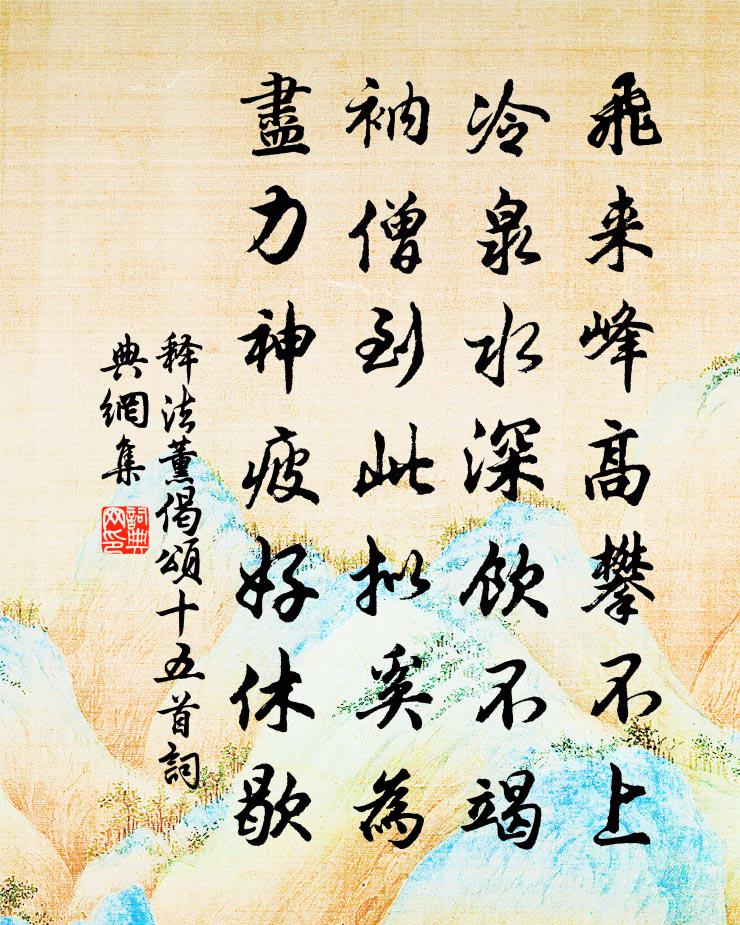 飛来峰高攀不上
冷泉水深飲不竭
衲僧到此擬奚為
盡力神疲好休歇
释法薰偈頌十五首詞
典網集
詞典
网印